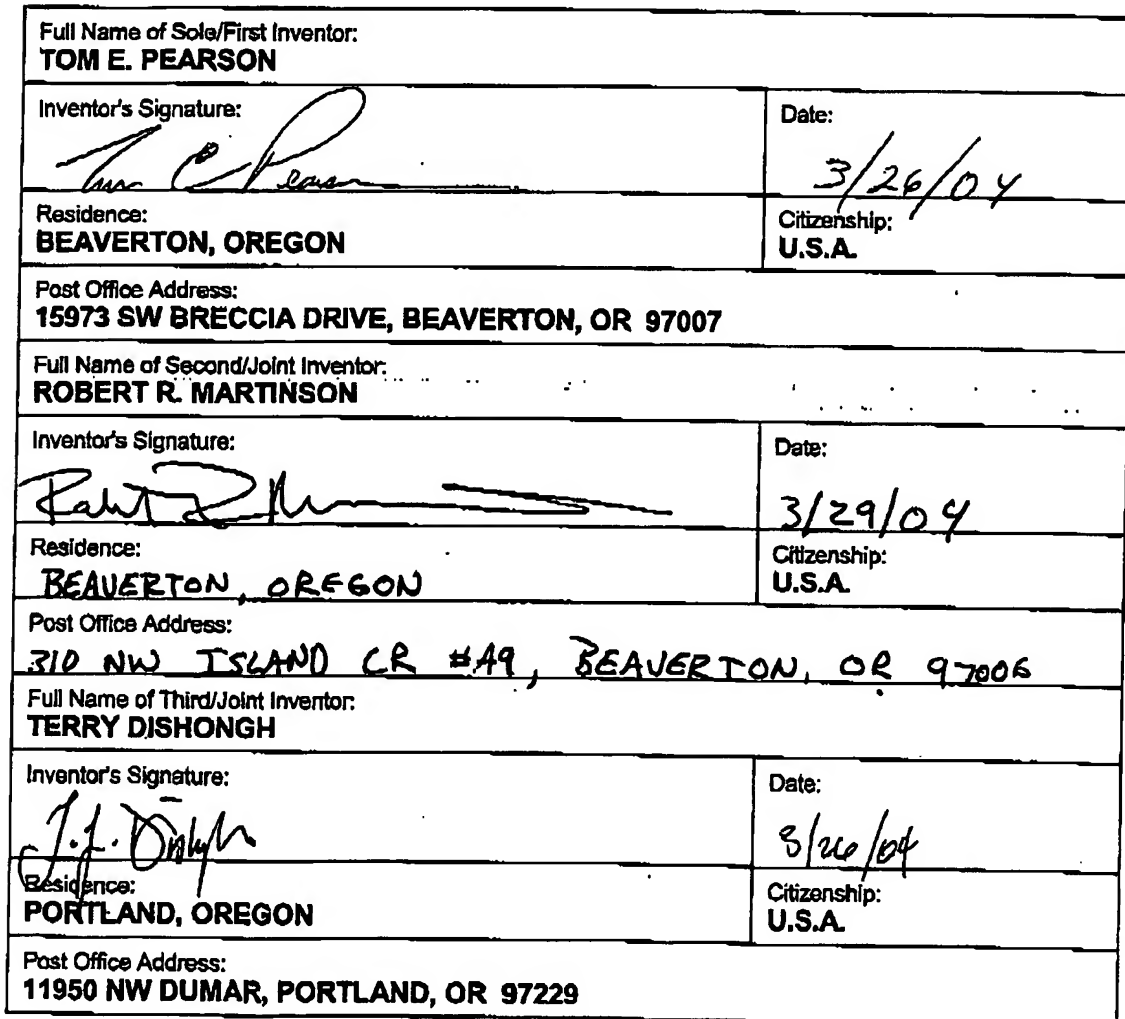 Full Name of Sole/First Inventor:
TOM E. PEARSON
Inventor's Signature:
Date:
3/26/04
Residence:
BEAVERTON, OREGON
Citizenship:
U.S.A.
Post Office Address:
15973 SW BRECCIA DRIVE, BEAVERTON, OR 97007
Full Name of Second/Joint Inventor:
ROBERT R. MARTINSON
Inventor's Signature:
Date:
3/29/04
Residence:
BEAVERTON, OREGON
Citizenship:
U.S.A.
Post Office Address:
310 NW ISLAND CR #A9, BEAVERTON, OR 97006
Full Name of Third/Joint Inventor:
TERRY DISHONGH
Inventor's Signature:
Date:
3/26/04
Residence:
PORTLAND, OREGON
Citizenship:
U.S.A.
Post Office Address:
11950 NW DUMAR, PORTLAND, OR 97229